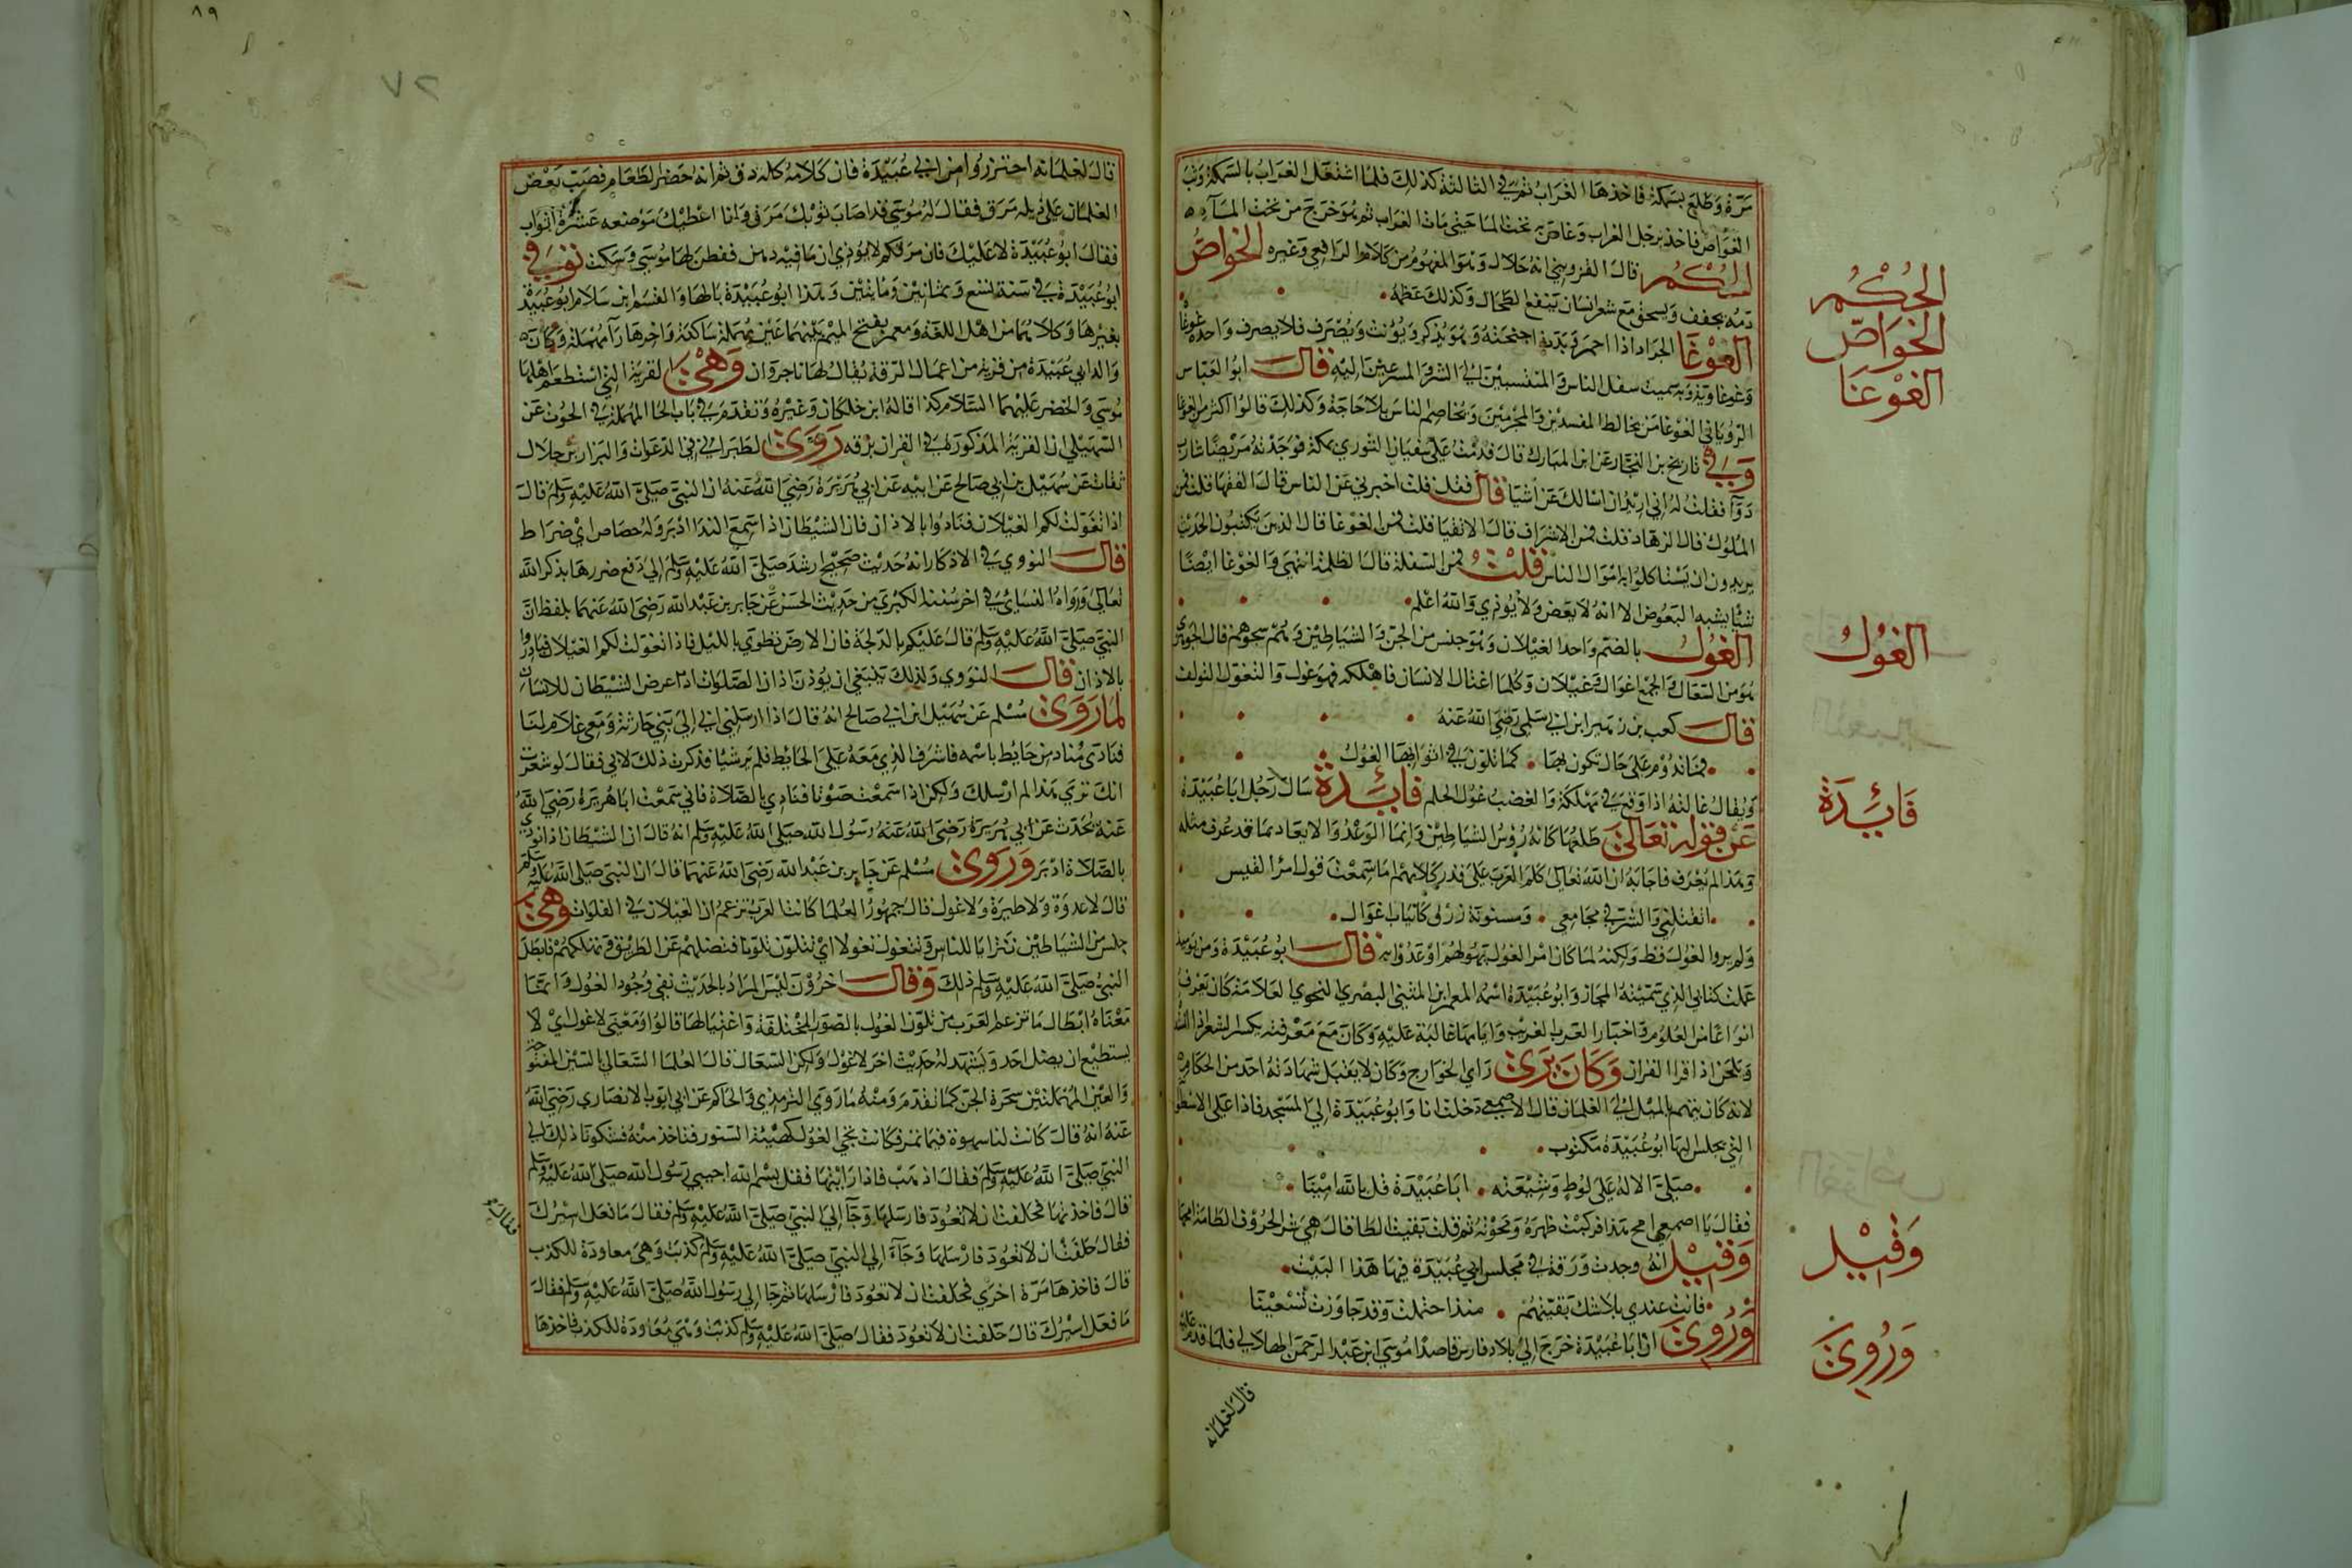 مرة وطلع بسمكة فاخذها الغراب ثم في الثالثة كذلك فلما اشتغل الغراب بالسمكة وثب
الغواص فاخذ برجل الغراب وغاص به تحت الماء حتى مات الغراب ثم هو خرج من تحت الماء
الحكم قال القزويني انه حلال وهو المفهوم من كلام الرافعي وغيره الخواص
دمه يجفف ويسحق مع شعر انسان ينفع الطحال وكذلك عظمه
الغوغا الجراد اذا احمر وبدت اجنحته وهو يذكر ويؤنث ويصرف ولا يصرف واحده غوغاة
وغوغاوية وبه سميت سفل الناس والمنتسبين الى الشر والمسرعين اليه قال ابو العباس
الروياني الغوغا من يخالط المفسدين والمجرمين ويخاصم الناس بلا حاجة وكذلك قالوا اكثر من الغوغا
وفي تاريخ بن النجار عن ابن المبارك قال قدمت على سفيان الثوري بمكة فوجدته مريضا شارب
دوآ فقلت له اني اريد ان اسالك عن اشيا فقال قل قلت اخبرني عن الناس قال الفقها قلت فمن
الملوك قال الزهاد قلت فمن الاشراف قال الاتقيا قلت فمن الغوغا قال الذين يكتبون الحديث
يريدون ان يستاكلوا به اموال الناس قلت فمن السفلة قال الظلمة انتهى والغوغا ايضا
شئ يشبه البعوض الا انه لا يعض ولا يوذي والله اعلم
الغول بالضم واحد الغيلان وهو جنس من الجن والشياطين وهم سحرهم قال الجوهري
هو من السعالي والجمع اغوال وغيلان وكلما اغتال الانسان فاهلكه فهو غول والتغول التلون
قال كعب بن زهير ابن ابي سلمى رضي الله عنه
فما تدوم على حال تكون بها كما تلون في اثوابها الغول
ويقال غالته اذا وقع في مهلكة والغضب غول الحلم فايدة سال رجل ابا عبيدة
عن قوله تعالى طلعها كانه رؤس الشياطين وانما الوعد والايعاد بما قد عرف مثله
وهذا لم يعرف فاجابه ان الله تعالى كلم العرب على قدر كلامهم ما سمعت قول امرا القيس
اتقتلني والمشرفي مجامعي ومسنونة زرق كانياب اغوال
ولم يروا الغول قط ولكنه لما كان امر الغول يهولهم اوعدوا به قال ابو عبيدة ومن يوميذ
عملت كتابي الذي سميته المجاز وابو عبيدة اسمه المعمر ابن المثنى البصري النحوي العلامة كان يعرف
انواعا من العلوم واخبار العرب الغريب وايامها غالبة عليه وكان مع معرفته يكسر الشعر اذا انشده
ويلحن اذا قرا القران وكان يرى راي الخوارج وكان لا يقبل شهادته احد من الحكام
لانه كان يتهم بالميل الى الغلمان قال الاصمعي دخلت انا وابو عبيدة الى المسجد فاذا على الاسطوانة
التي يجلس اليها ابو عبيدة مكتوب
صلى الاله على لوط وشيعته ابا عبيدة قل بالله امينا
فقال يا اصمعي امح هذا فركبت ظهره ومحوته ثم قلت بقيت الطا فقال هي شر الحروف الطامة امحها
وقيل انه وجدت ورقة في مجلس ابي عبيدة فيها هذا البيت
فانت عندي بلا شك بقيتهم منذ احتلمت وقد جاوزت تسعينا
وروي ان ابا عبيدة خرج الى بلاد فارس قاصدا موسى ابن عبد الرحمن الهلالي فلما قدم عليه
قال لغلمانه
الحكم
الخواص
الغوغا
الغول
فايدة
وقيل
وروي
٨٩
قال لغلمانه احترزوا من ابي عبيدة فان كلامه كله دق ثم انه حضر الطعام فصب بعض
الغلمان على ذيله مرق فقال له موسى قد اصاب ثوبك مرق وانا اعطيك موضعه عشرة اثواب
فقال ابو عبيدة لا عليك فان مرقكم لا يوذي ان ما فيه دهن ففطن لها موسى وسكت توفي
ابو عبيدة في سنة تسع وثمانين ومايتين وهذا ابو عبيدة بالها والقسم ابن سلام ابو عبيد
بغيرها وكلاهما من اهل اللغة ومعمر بفتح الميم بينهما عين مهملة ساكنة واخرها رآ مهملة وكان
والد ابي عبيدة من قرية من اعمال الرقة يقال لها باجروان وهي القرية التي استطعم اهلها
موسى والخضر عليهما السلام كذا قاله ابن خلكان وغيره وتقدم في باب الحا المهملة في الحوت عن
السهيلي ان القرية المذكورة في القران برقه روى الطبراني في الدعوات والبزار برجال
ثقات عن سهيل بن ابي صالح عن ابيه عن ابي هريرة رضي الله عنه ان النبي صلى الله عليه وسلم قال
اذا تغولت لكم الغيلان فنادوا بالاذان فان الشيطان اذا سمع الندا ادبر وله حصاص اي ضراط
قال النووي في الاذكار انه حديث صحيح ارشد صلى الله عليه وسلم الى دفع ضررها بذكر الله
تعالى ورواه النسائي في اخر سننه الكبرى من حديث الحسن عن جابر بن عبد الله رضي الله عنهما بلفظ ان
النبي صلى الله عليه وسلم قال عليكم بالدلجة فان الارض تطوى بالليل فاذا تغولت لكم الغيلان فبادروا
بالاذان قال النووي ولذلك ينبغي ان يؤذن اذان الصلوات اذا عرض الشيطان للانسان
لما روى مسلم عن سهيل ابن ابي صالح انه قال اذا ارسلني ابي الى بني حارثة ومعي غلام لنا
فنادى مناد من حايط باسمه فاشرف الذي معه على الحايط فلم ير شيا فذكرت ذلك لابي فقال لو شعرت
انك ترى هذا لم ارسلك ولكن اذا سمعت صوتا فنادي بالصلاة فاني سمعت ابا هريرة رضي الله
عنه يحدث عن ابي هريرة رضي الله عنه رسول الله صلى الله عليه وسلم انه قال ان الشيطان اذا نودي
بالصلاة ادبر وروى مسلم عن جابر بن عبد الله رضي الله عنهما قال ان النبي صلى الله عليه وسلم
قال لا عدوة ولا طيرة ولا غول قال جمهور العلما كانت العرب تزعم ان الغيلان في الفلوات وهي
جنس من الشياطين تترايا للناس وتتغول تغولا اي تتلون تلونا فتضلهم عن الطريق وتهلكهم فابطل
النبي صلى الله عليه وسلم ذلك وقال اخرون ليس المراد بالحديث نفي وجود الغول وانما
معناه ابطال ما تزعم العرب من تلون الغول بالصور المختلفة واغتيالها قالوا ومعنى لا غول اي لا
يستطيع ان يضل احد ويشهد له حديث اخر لا غول ولكن السعال قال العلما السعالي بالسين المفتوحة
والعين المهملتين سحرة الجن كما تقدم ومنه ما روى الترمذي والحاكم عن ابي ايوب الانصاري رضي الله
عنه انه قال كانت لنا سهوة فيها تمر فكانت تجي الغول كهيئة السنور فتاخذ منه فشكونا ذلك الى
النبي صلى الله عليه وسلم فقال اذهب فاذا رايتها فقل بسم الله اجيبي رسول الله صلى الله عليه وسلم
قال فاخذتها فحلفت ان لا تعود فارسلها وجآ الى النبي صلى الله عليه وسلم فقال ما فعل اسيرك
فقال حلفت ان لا تعود فارسلها وجآء الى النبي صلى الله عليه وسلم كذبت وهي معاودة للكذب
قال فاخذها مرة اخرى فحلفت ان لا تعود فارسلها ثم جا الى رسول الله صلى الله عليه وسلم فقال
ما فعل اسيرك قال حلفت ان لا تعود فقال صلى الله عليه وسلم كذبت وهي معاودة للكذب فاخذها